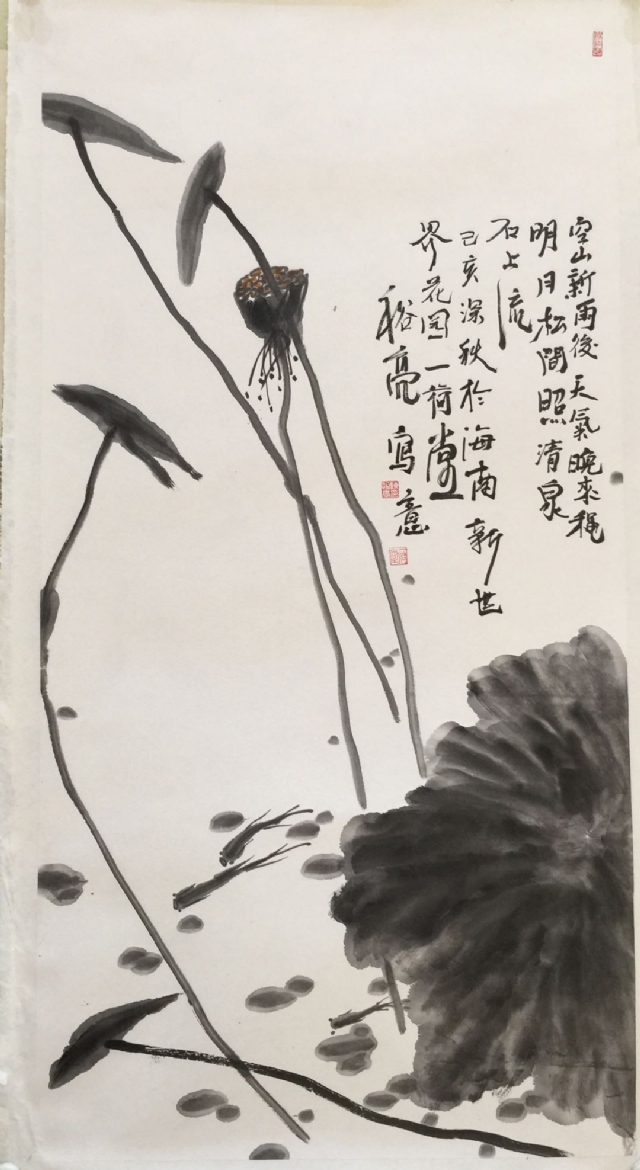 空山新雨後天氣晚來穐
明月松間照清泉
石上流
己亥深秋於海南新世
界花园一荷堂
裕亮寫意